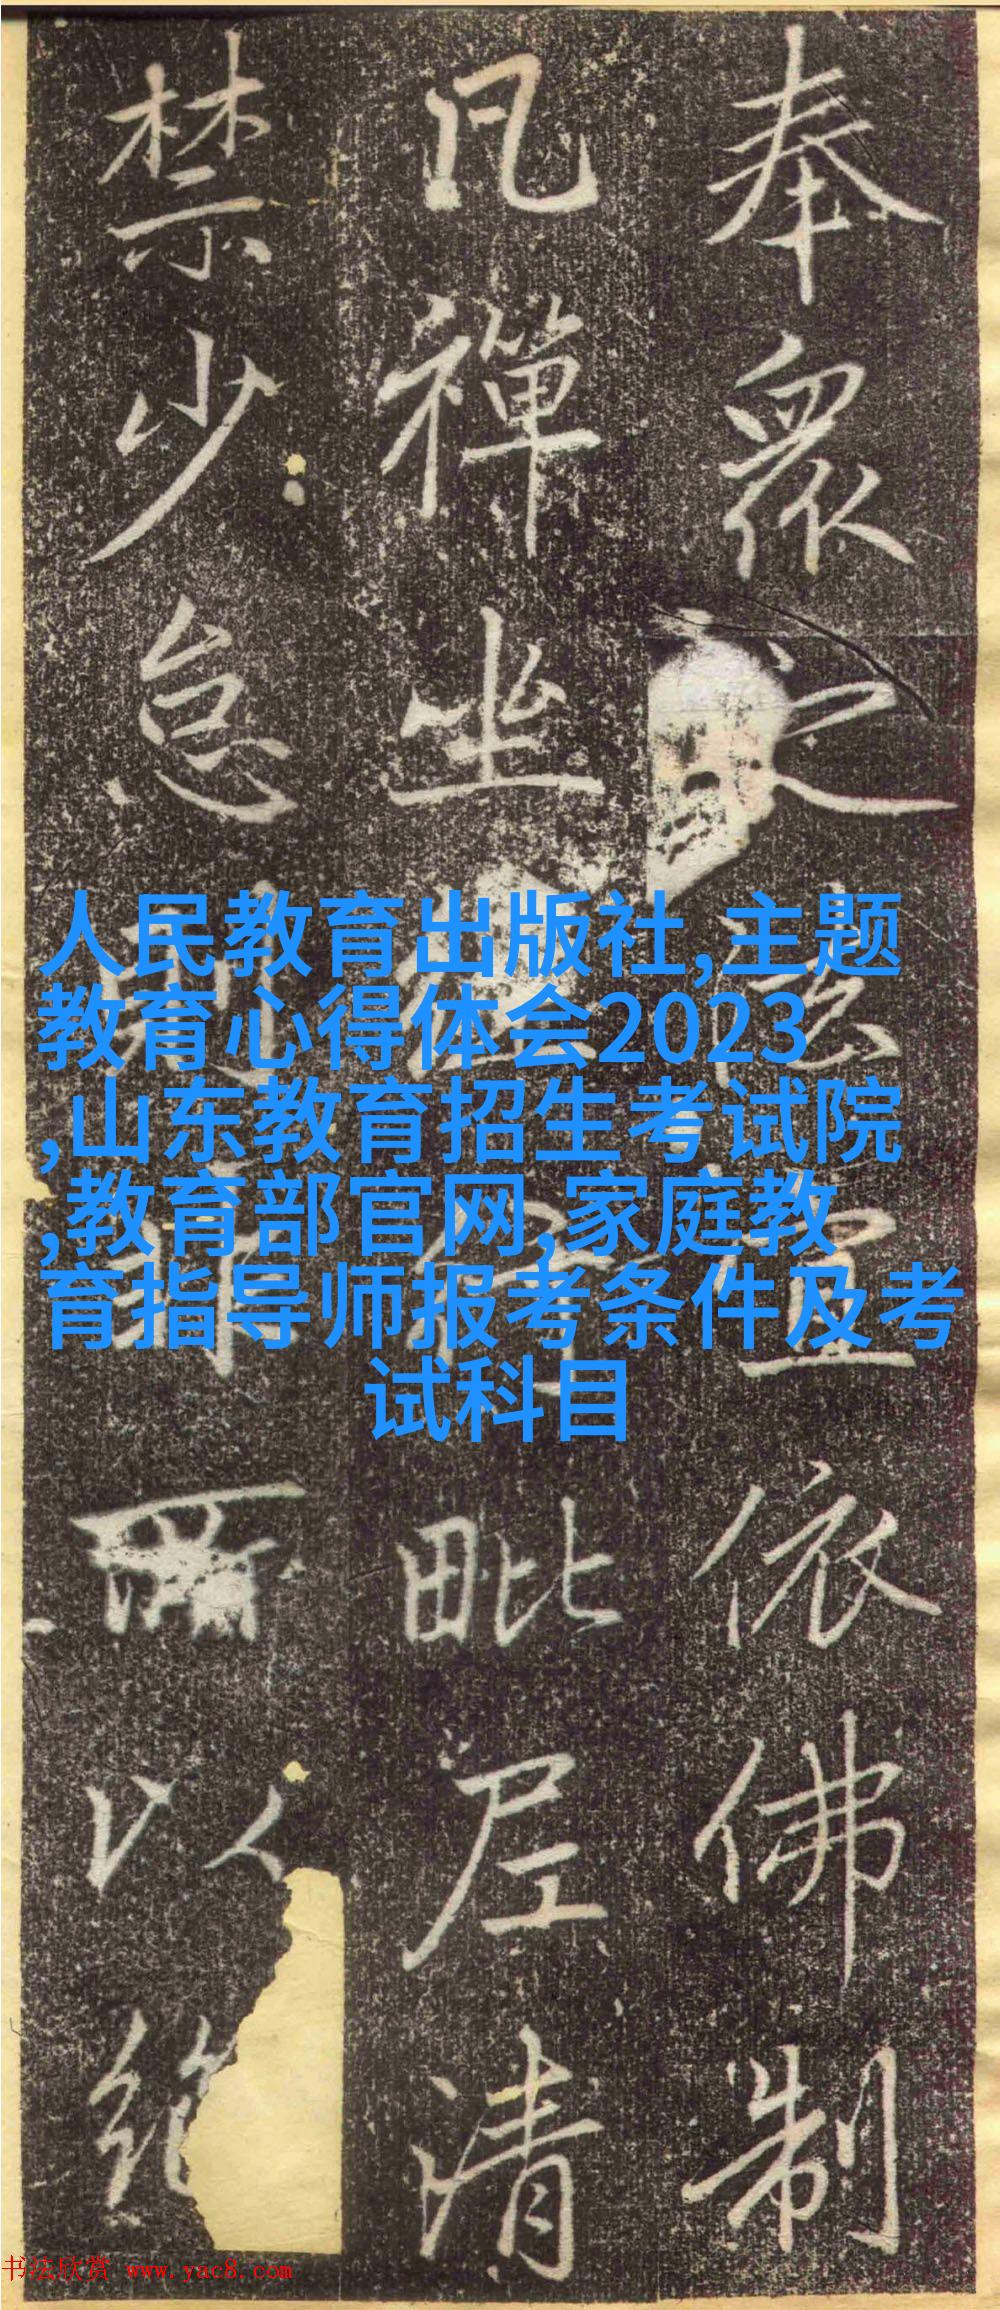 奉眾 依佛制
凡禪坐 毗尼清
禁少怠 以
人民教育出版社,主题
教育心得体会2023
,山东教育招生考试院
,教育部官网,家庭教
育指导师报考条件及考
试科目
书法欣赏 www.yac8.com